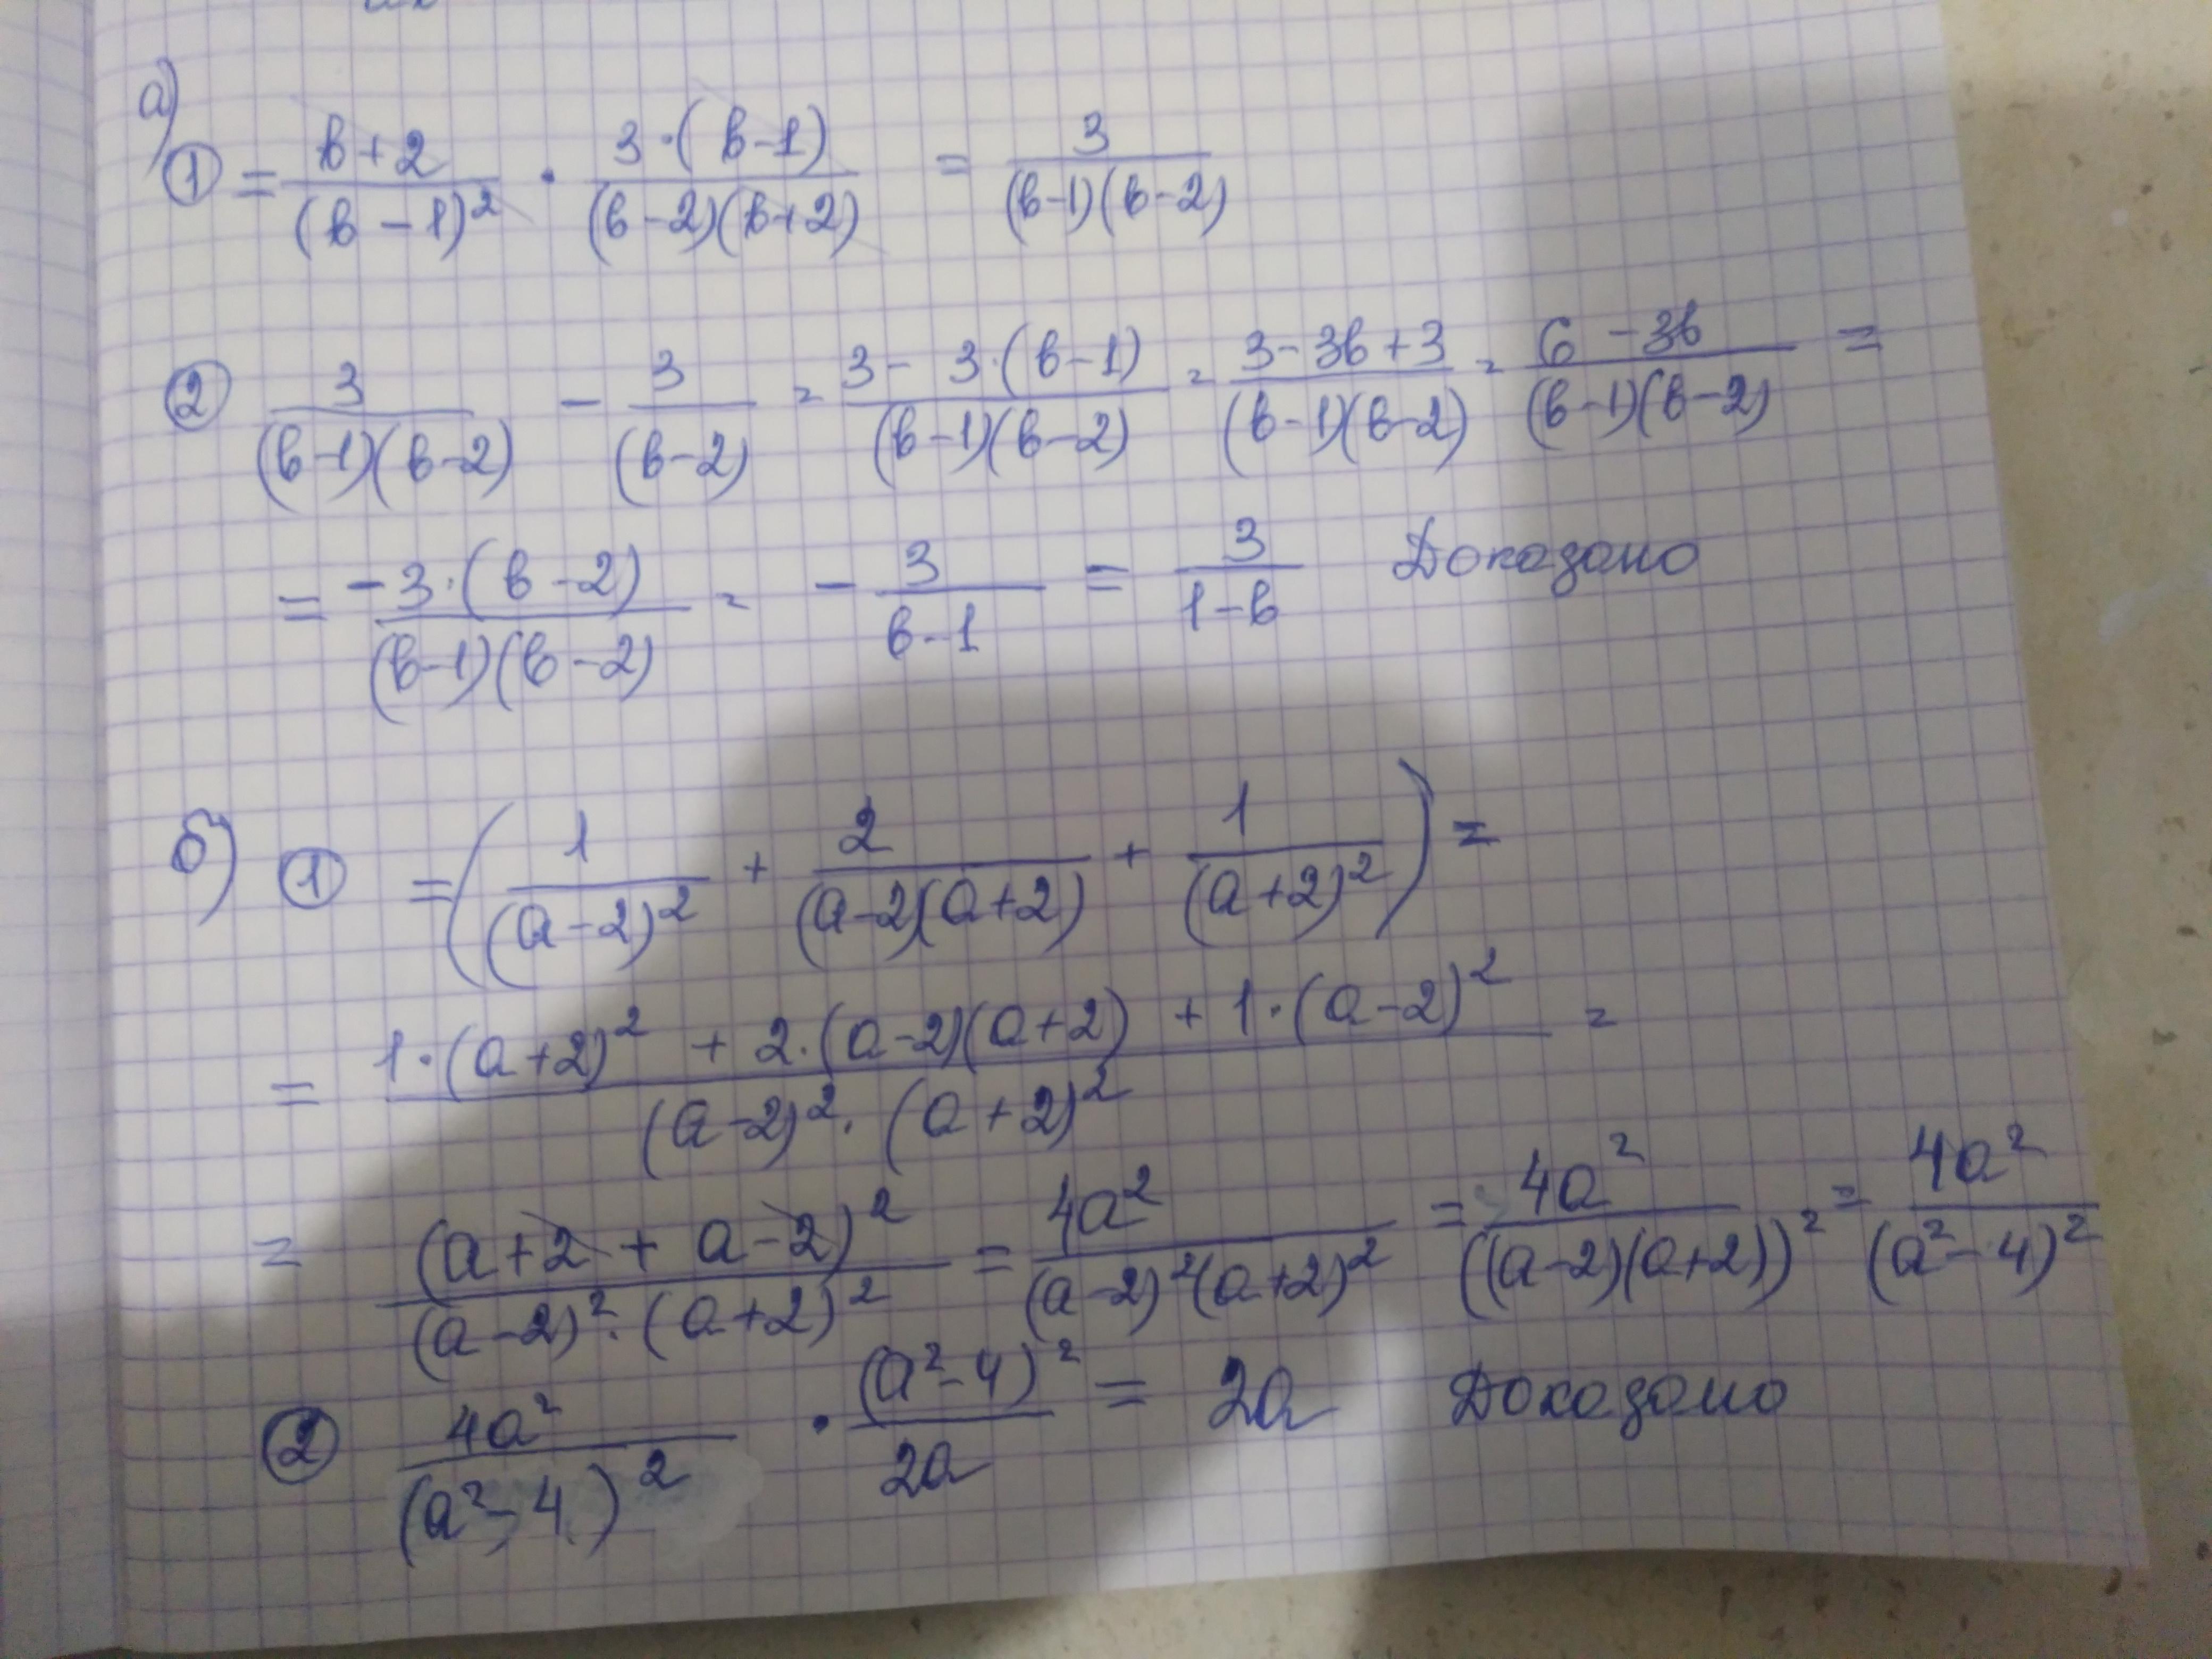 а)
① = (в+2)/(в-1)² · (3·(в-1))/((в-2)(в+2)) = 3/((в-1)(в-2))
② 3/((в-1)(в-2)) - 3/(в-2) = (3-3·(в-1))/((в-1)(в-2)) = (3-3в+3)/((в-1)(в-2)) = (6-3в)/((в-1)(в-2)) =
= (-3·(в-2))/((в-1)(в-2)) = -3/(в-1) = 3/(1-в) Доказано
б) ① = (1/(a-2)² + 2/((a-2)(a+2)) + 1/(a+2)²) =
= (1·(a+2)² + 2·(a-2)(a+2) + 1·(a-2)²)/((a-2)²·(a+2)²) =
= (a+2+a-2)²/((a-2)²·(a+2)²) = 4a²/((a-2)²(a+2)²) = 4a²/((a-2)(a+2))² = 4a²/(a²-4)²
② 4a²/(a²-4)² · (a²-4)²/2a = 2a Доказано